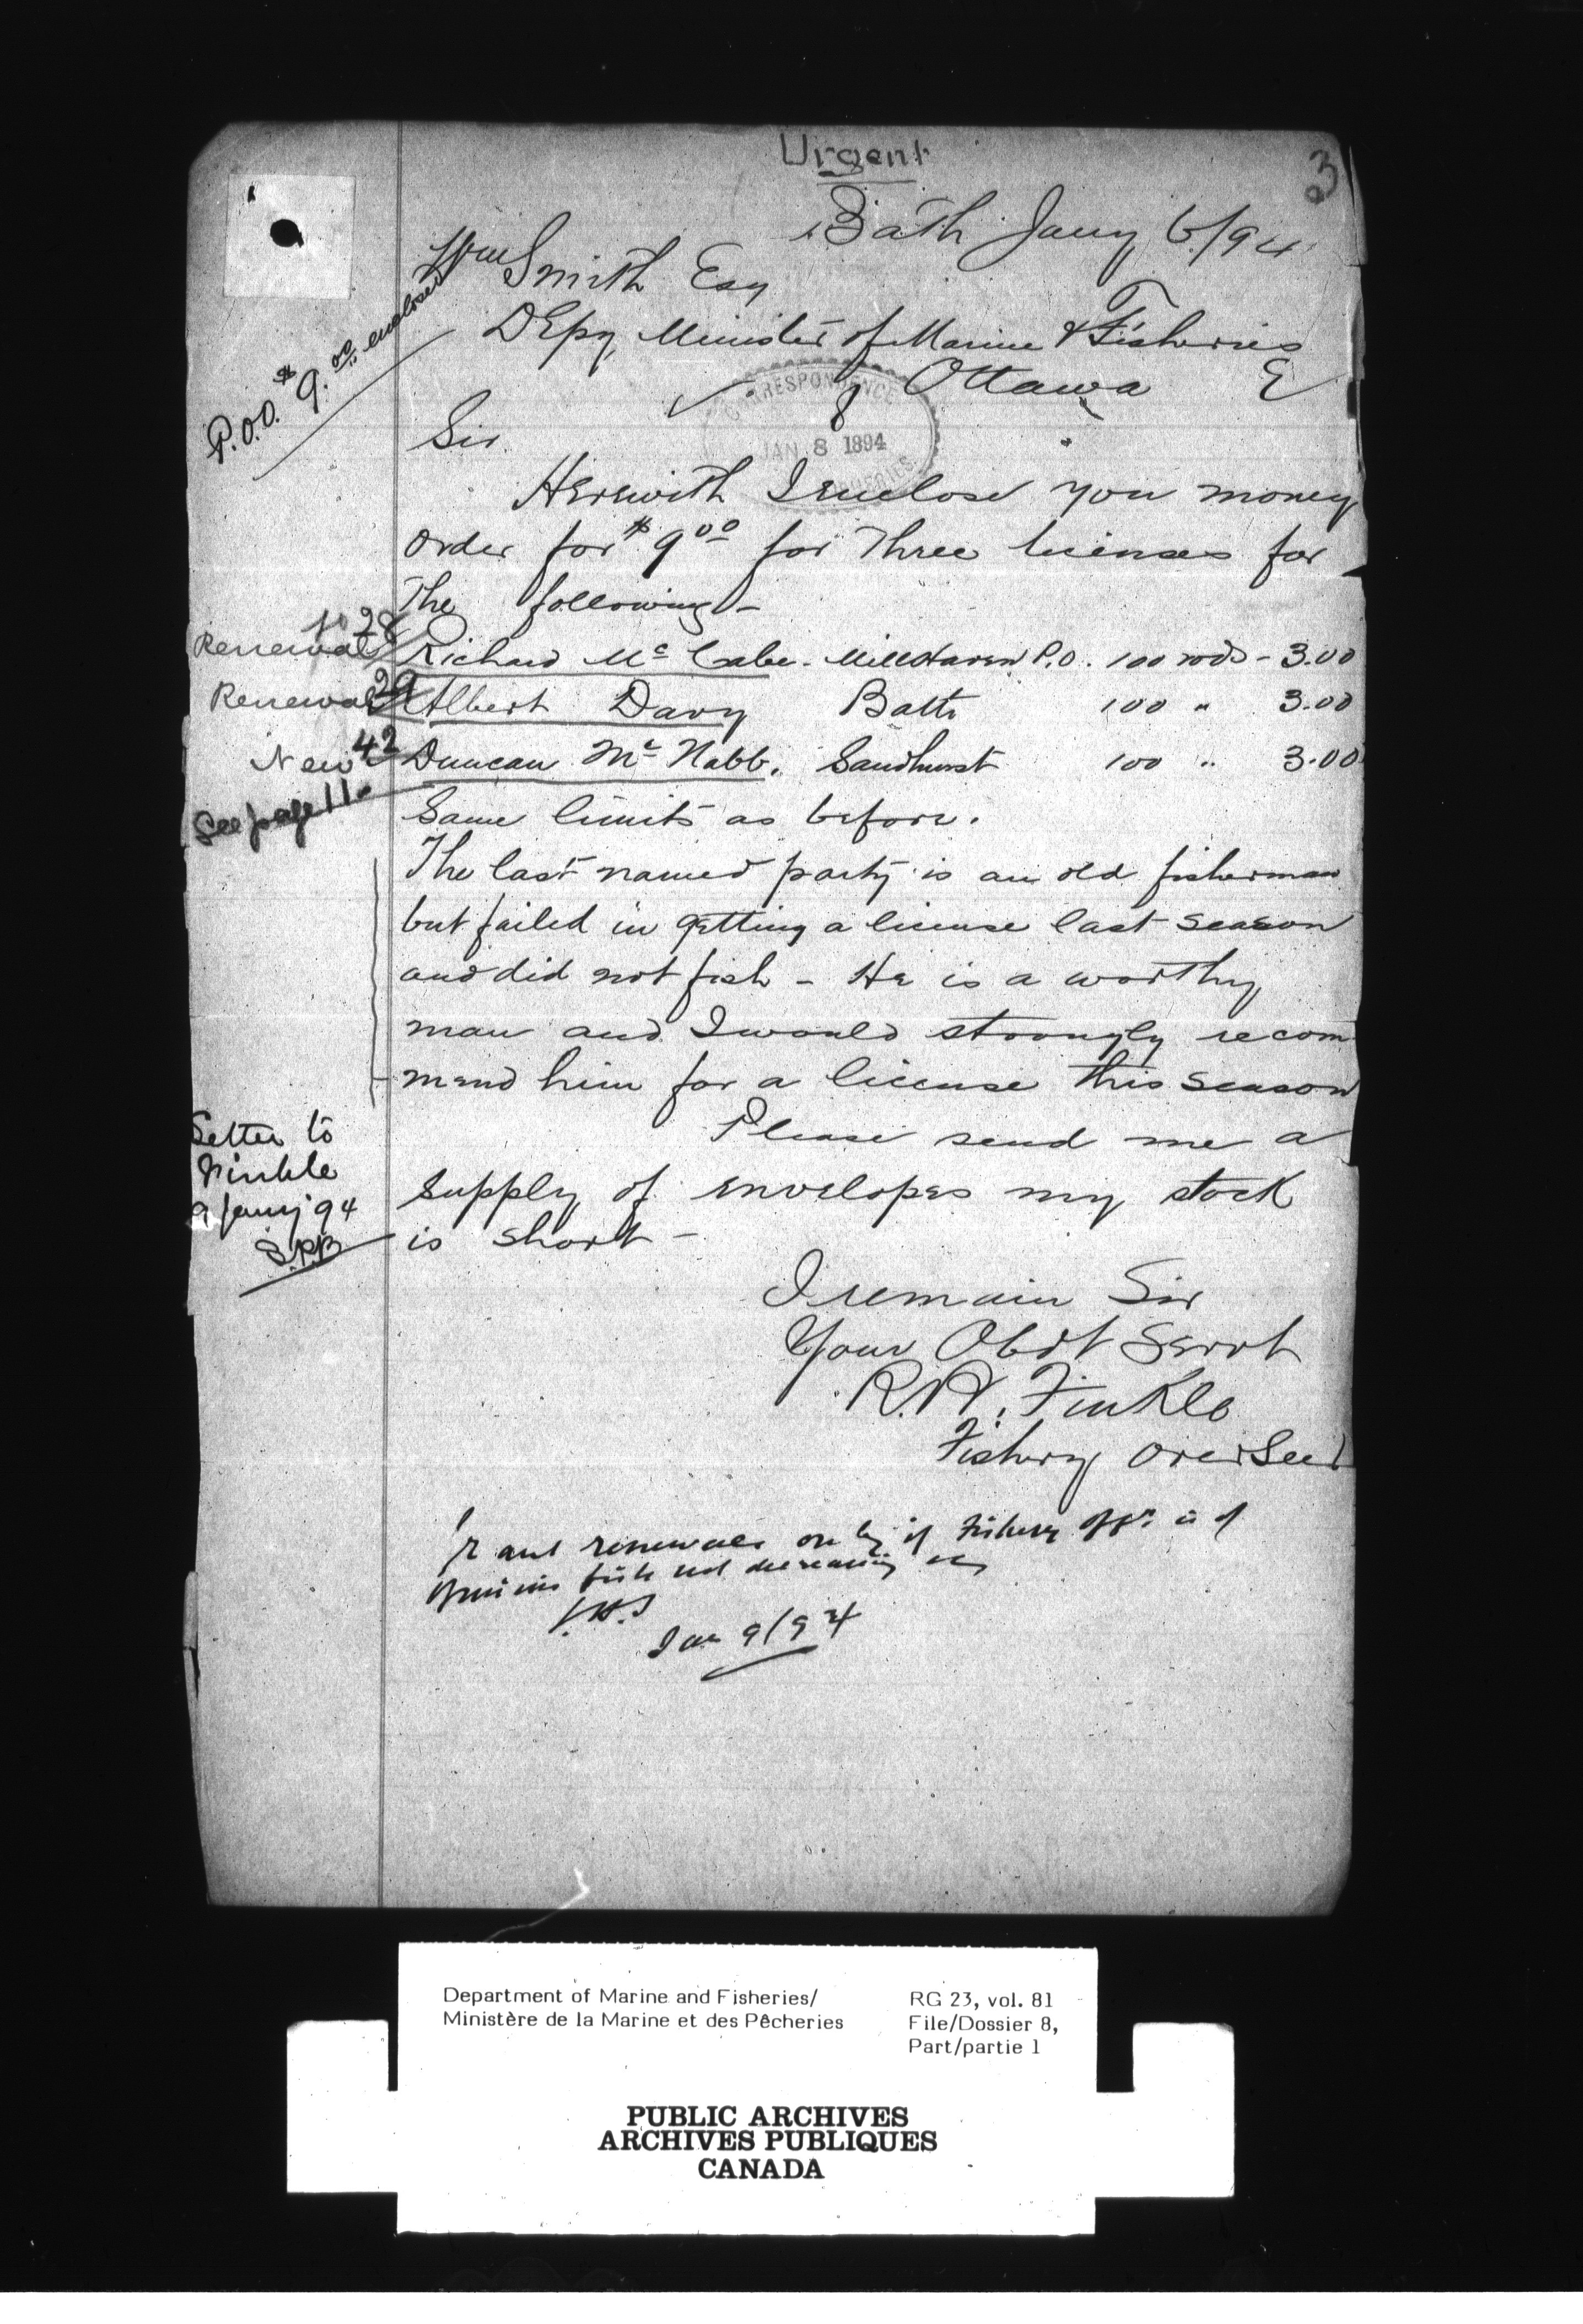 Urgent
3
Bath Jany 6/94
Wm Smith Esq
DEpy Minister of Marine & Fisheries
Ottawa
P.O.O. $9.00 enclosed
CORRESPONDENCE
JAN 8 1894
FISHERIES
Sir
Herewith I enclose you money
order for $9 00 for Three licenses for
The following –
Renewal 28 Richard Mc Cabe. Millhaven P.O. 100 rods – 3.00
Renewal 29 Albert Davy Bath 100 " 3.00
New 42 Duncan Mc Nabb. Sandhurst 100 " 3.00
See page 11.
Same limits as before.
The last named party is an old fisherman
but failed in getting a license last season
and did not fish – He is a worthy
man and I would strongly recom
mend him for a license this season
Please send me a
supply of envelopes my stock
is short –
Letter to
Finkle
9 Jany 94
S.P.B
I remain Sir
Your Obdt Servt
R.R. Finkle
Fishery Overseer
renewals only if Fishery Offr is of
opinion fish not decreasing
Jan 9/94
Department of Marine and Fisheries/
Ministère de la Marine et des Pêcheries
RG 23, vol. 81
File/Dossier 8,
Part/partie 1
PUBLIC ARCHIVES
ARCHIVES PUBLIQUES
CANADA